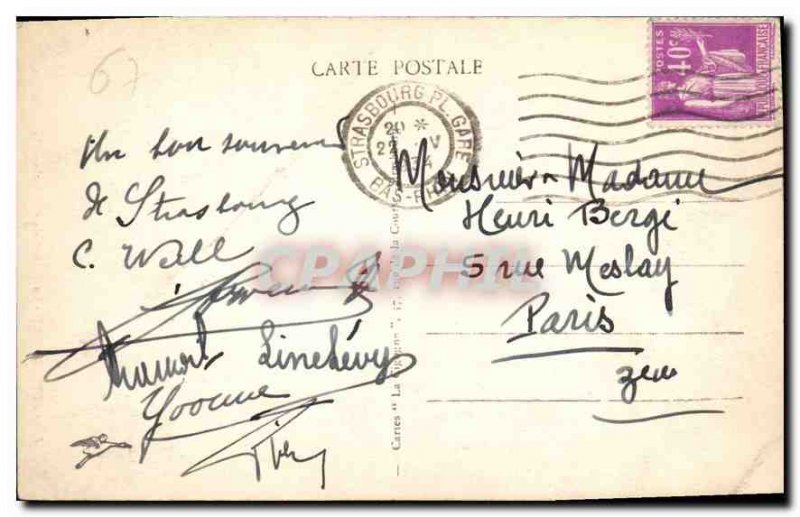 67
CARTE POSTALE
POSTES
40c
RÉPUBLIQUE FRANÇAISE
STRASBOURG PL. GARE
20 *
22 V
34
BAS-RHIN
Un bon souvenir
de Strasbourg
C. Wall
Yvonne
Monsieur Madame
Henri Bergi
5 rue Meslay
Paris
3eme
Cartes "La Cigogne", 17, rue de la
CPAPHIL